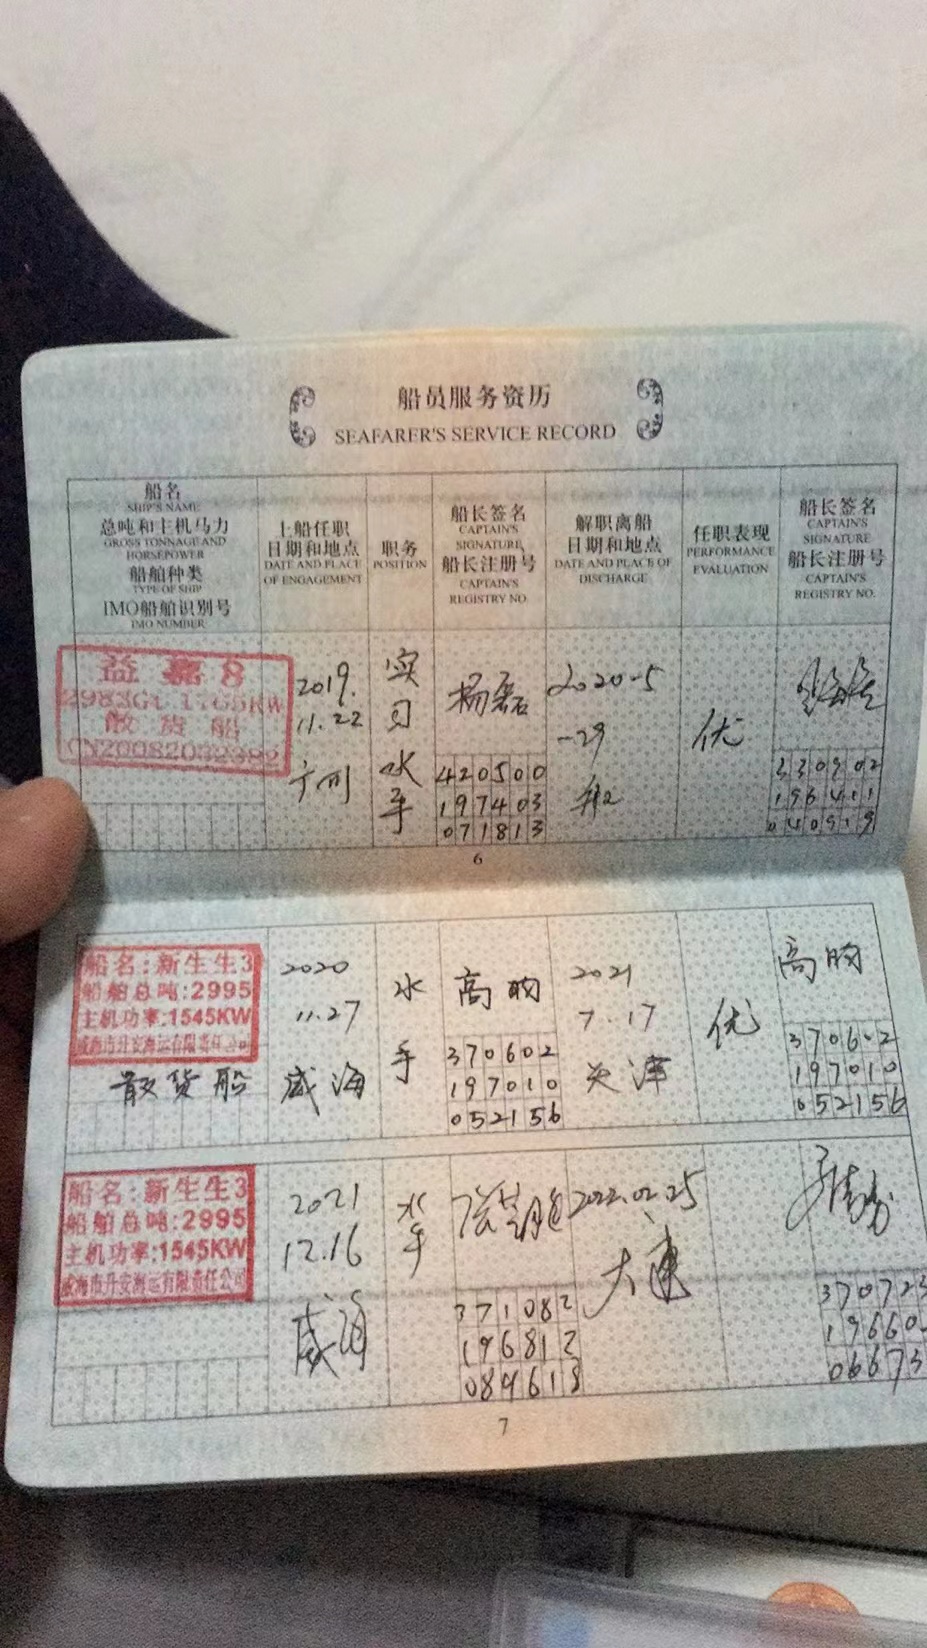 船员服务资历
SEAFARER'S SERVICE RECORD
船名
SHIP'S NAME
总吨和主机马力
GROSS TONNAGE AND
HORSEPOWER
船舶种类
TYPE OF SHIP
IMO船舶识别号
IMO NUMBER
上船任职
日期和地点
DATE AND PLACE
OF ENGAGEMENT
职务
POSITION
船长签名
CAPTAIN'S
SIGNATURE
船长注册号
CAPTAIN'S
REGISTRY NO.
解职离船
日期和地点
DATE AND PLACE OF
DISCHARGE
任职表现
PERFORMANCE
EVALUATION
船长签名
CAPTAIN'S
SIGNATURE
船长注册号
CAPTAIN'S
REGISTRY NO.
益嘉8
2983GT 1765KW
散货船
2019.
11.22
广州
实
习
水
手
杨磊
420500
197403
071813
2020-5
-29
优
330902
196411
040919
6
船名:新生生3
船舶总吨:2995
主机功率:1545KW
威海市升安海运有限责任公司
散货船
2020
11.27
威海
水
手
高昀
370602
197010
052156
2021
7.17
天津
优
高昀
370602
197010
052156
船名:新生生3
船舶总吨:2995
主机功率:1545KW
威海市升安海运有限责任公司
2021
12.16
威海
水
手
371082
196812
089618
2022.02.25
大连
7